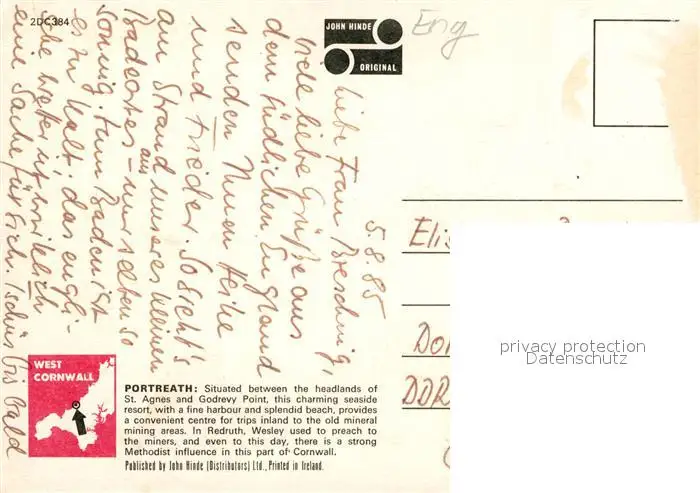 2DC384
JOHN HINDE
ORIGINAL
Eng
5.8.85
Liebe Frau
viele liebe Grüße aus
dem südlichen England
senden Ihnen Heike
und Frieder. So sieht's
am Strand unseres kleinen
Badeortes aus – nur selten so
sonnig. Zum Baden ist
es zu kalt, das engli-
sche Wetter ist wirklich
eine Sache für sich. Tschüs bis bald
Elis
DDR
privacy protection
Datenschutz
WEST
CORNWALL
PORTREATH: Situated between the headlands of
St. Agnes and Godrevy Point, this charming seaside
resort, with a fine harbour and splendid beach, provides
a convenient centre for trips inland to the old mineral
mining areas. In Redruth, Wesley used to preach to
the miners, and even to this day, there is a strong
Methodist influence in this part of Cornwall.
Published by John Hinde (Distributors) Ltd., Printed in Ireland.